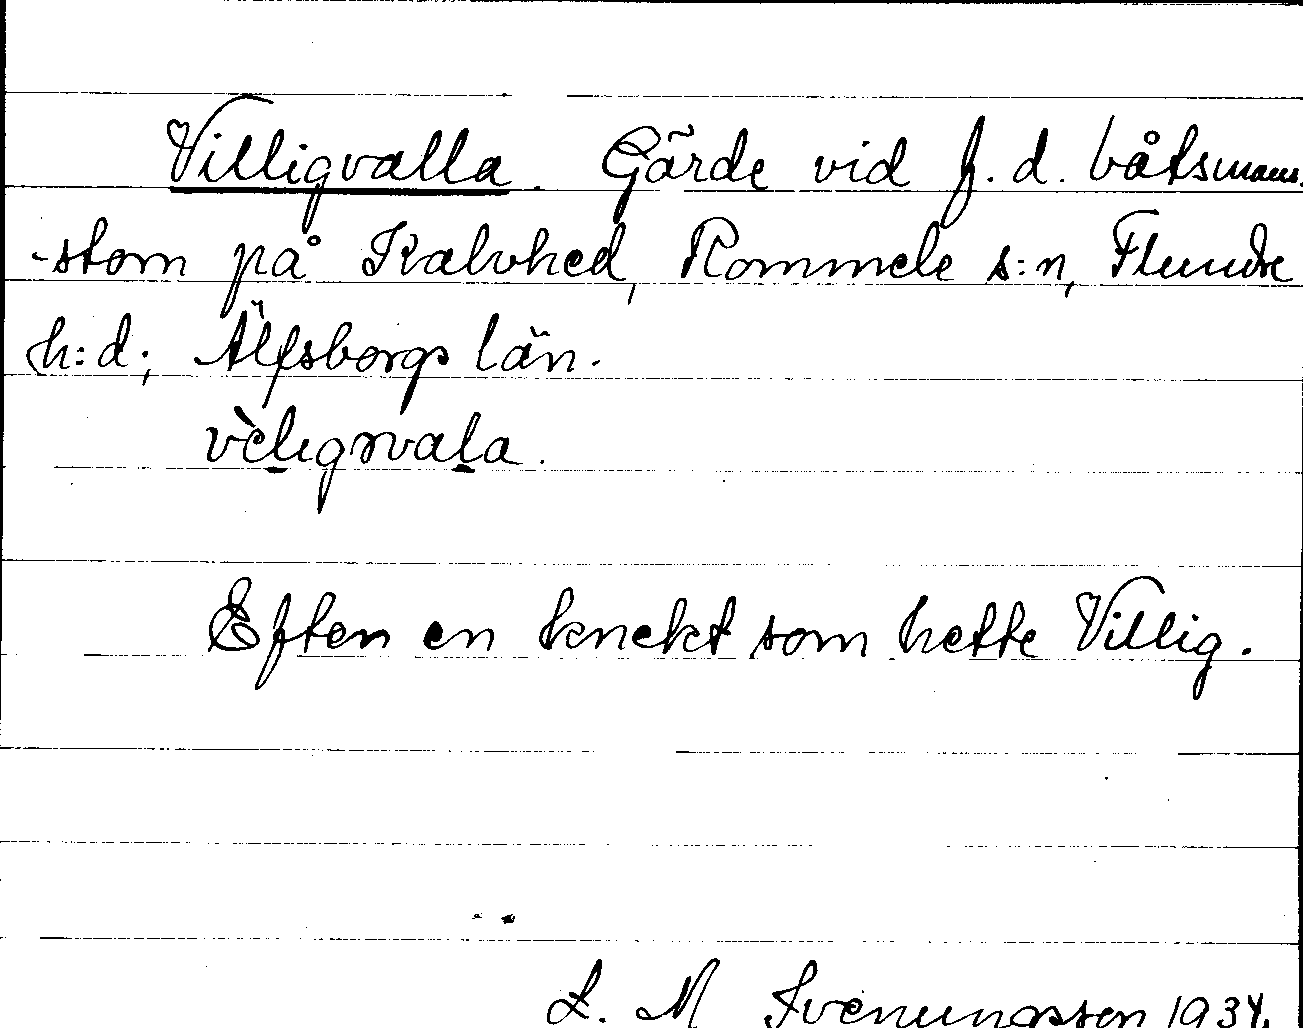 Villigvalla. Gärde vid f.d. båtsmans-
-stom på Kalvhed, Rommele s:n, Flundre
h:d; Älfsborgs län.
vèlıgsvala.
Efter en knekt som hette Villig.
L. M Svenungsson 1934.